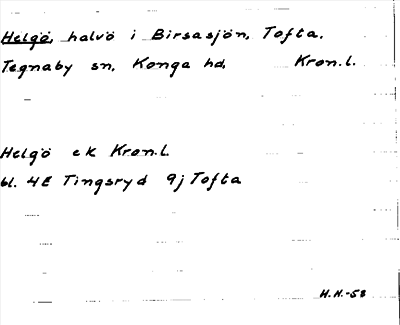 Helgö, halvö i Birsasjön, Tofta.
Tegnaby sn, Konga hd, Kron.l.
Helgö ek Kron.l.
bl. 4E Tingsryd 9j Tofta
H.H.-58